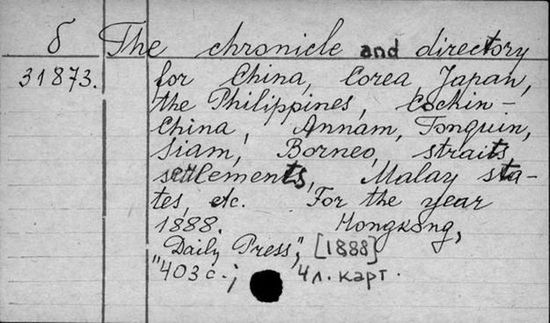 б The chronicle and directory
31873. for China, Corea, Japan,
the Philippines, Cochin-
China, Annam, Tonquin,
Siam, Borneo, straits
settlements, Malay sta-
tes, etc. For the year
1888. Hongkong,
"Daily Press", [1888]
403 с.; 4 л. карт.